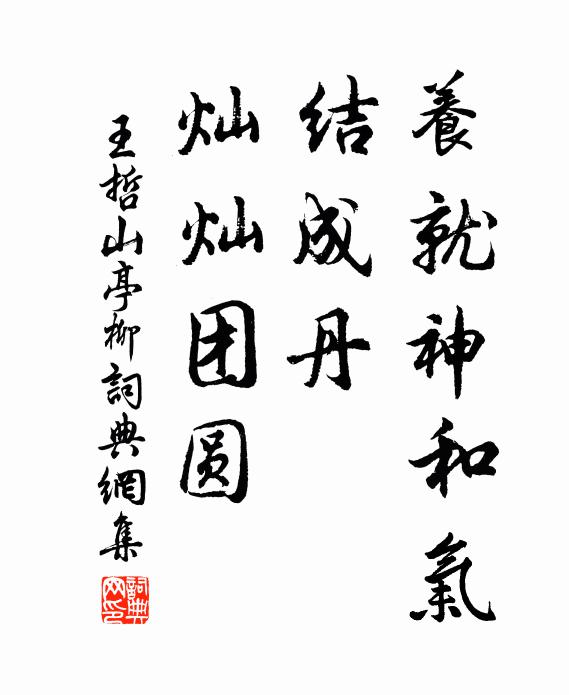 養就神和氣
结成丹
灿灿团圆
王哲山亭柳詞典網集
詞典网印